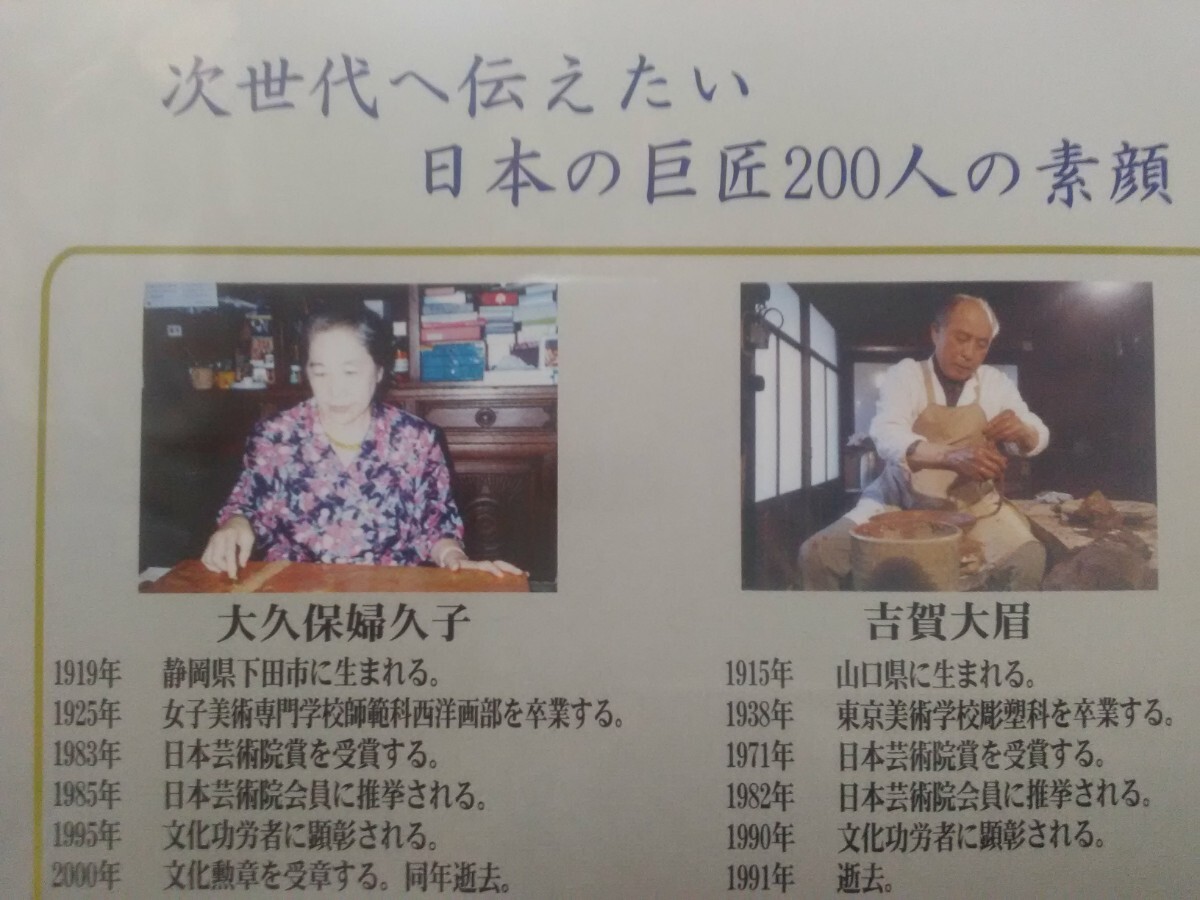 次世代へ伝えたい
日本の巨匠200人の素顔
大久保婦久子
1919年 静岡県下田市に生まれる。
1925年 女子美術専門学校師範科西洋画部を卒業する。
1983年 日本芸術院賞を受賞する。
1985年 日本芸術院会員に推挙される。
1995年 文化功労者に顕彰される。
2000年 文化勲章を受章する。同年逝去。
吉賀大眉
1915年 山口県に生まれる。
1938年 東京美術学校彫塑科を卒業する。
1971年 日本芸術院賞を受賞する。
1982年 日本芸術院会員に推挙される。
1990年 文化功労者に顕彰される。
1991年 逝去。